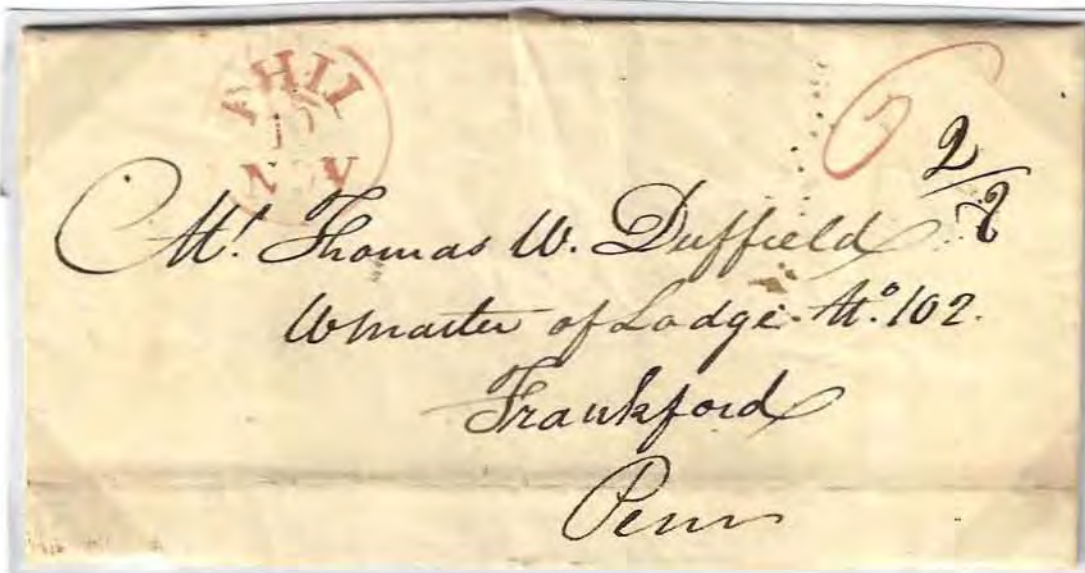 PHIL
15
NOV
6
2/8
Mr. Thomas W. Duffield
W master of Lodge No. 102.
Frankford
Penn